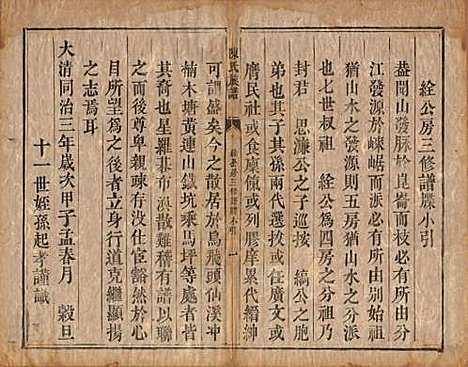 經公房三修譜牒小引
蓋聞山發脈於崑崙而枝必有所由分
江發源於崍崌而派必有所由別始祖
猶山水之發源則五房猶山水之分派
也七世叔祖 經公為四房之分祖乃
封君 思濂公之三巡按 縞公之胞
弟也其孫兩代選拔或任廣文或
膺民社或食廩餼或列膠庠累代縉紳
陳氏族譜
經公房三修譜牒小引 一
可謂盛矣今之散居於烏飛頭仙溪冲
楠木塘黃連山鐵坑乘馬坪等處者皆
其裔也星羅碁布渙散難稽有譜以聯
之而後尊卑親疎有次仕宦豁然於心
目所望為之後者立身行道克繼顯揚
之志焉耳
大清同治三年歲次甲子孟春月 穀旦
十一世姪孫起孝謹識